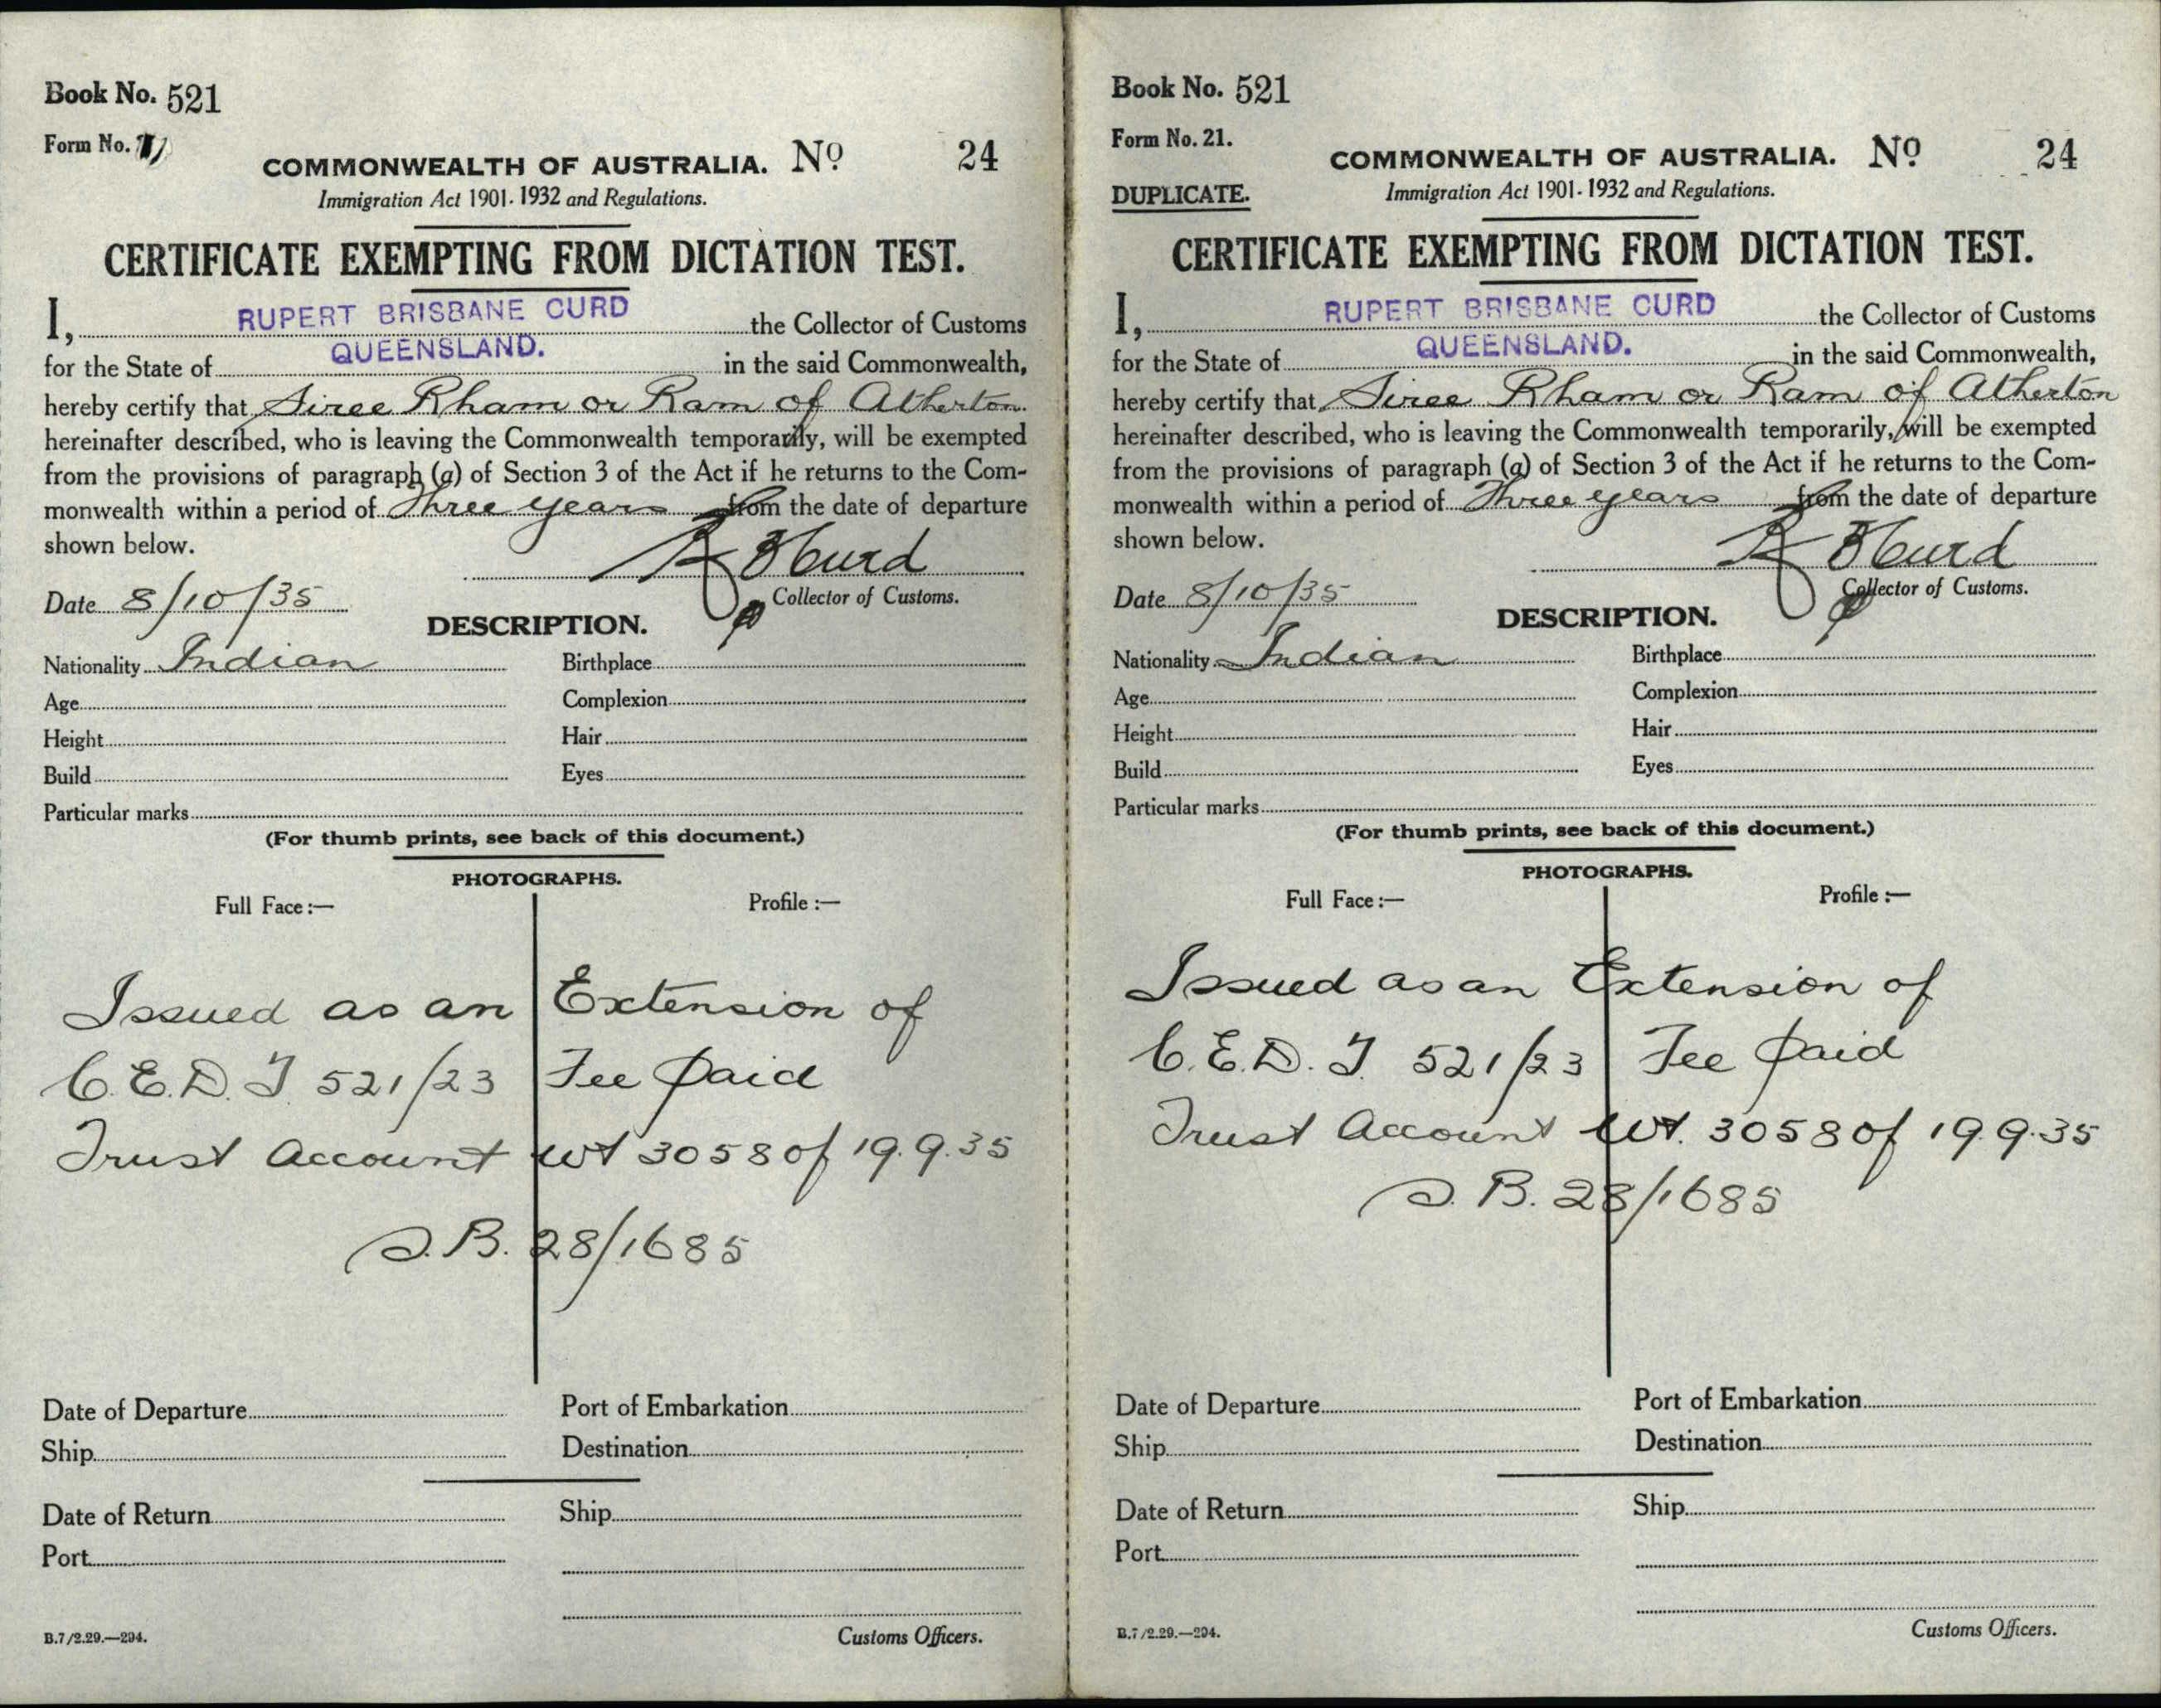 Book No. 521
Form No.
COMMONWEALTH OF AUSTRALIA. No 24
Immigration Act 1901-1932 and Regulations.
CERTIFICATE EXEMPTING FROM DICTATION TEST.
I, RUPERT BRISBANE CURD the Collector of Customs
for the State of QUEENSLAND. in the said Commonwealth,
hereby certify that Siree Rham or Ram of Atherton
hereinafter described, who is leaving the Commonwealth temporarily, will be exempted
from the provisions of paragraph (a) of Section 3 of the Act if he returns to the Com-
monwealth within a period of Three years from the date of departure
shown below.
R B Curd
Date 8/10/35 Collector of Customs.
DESCRIPTION.
Nationality Indian Birthplace
Age Complexion
Height Hair
Build Eyes
Particular marks
(For thumb prints, see back of this document.)
PHOTOGRAPHS.
Full Face:— Profile:—
Issued as an Extension of
C.E.D.T. 521/23 Fee paid
Trust Account Wt 3058 of 19.9.35
S.B. 28/1685
Date of Departure Port of Embarkation
Ship Destination
Date of Return Ship
Port
B.7/2.29.—294. Customs Officers.
Book No. 521
Form No. 21.
COMMONWEALTH OF AUSTRALIA. No 24
DUPLICATE. Immigration Act 1901-1932 and Regulations.
CERTIFICATE EXEMPTING FROM DICTATION TEST.
I, RUPERT BRISBANE CURD the Collector of Customs
for the State of QUEENSLAND. in the said Commonwealth,
hereby certify that Siree Rham or Ram of Atherton
hereinafter described, who is leaving the Commonwealth temporarily, will be exempted
from the provisions of paragraph (a) of Section 3 of the Act if he returns to the Com-
monwealth within a period of Three years from the date of departure
shown below.
R B Curd
Date 8/10/35 Collector of Customs.
DESCRIPTION.
Nationality Indian Birthplace
Age Complexion
Height Hair
Build Eyes
Particular marks
(For thumb prints, see back of this document.)
PHOTOGRAPHS.
Full Face:— Profile:—
Issued as an Extension of
C.E.D.T. 521/23 Fee paid
Trust Account Wt. 3058 of 19.9.35
S.B. 28/1685
Date of Departure Port of Embarkation
Ship Destination
Date of Return Ship
Port
B.7/2.29.—294. Customs Officers.